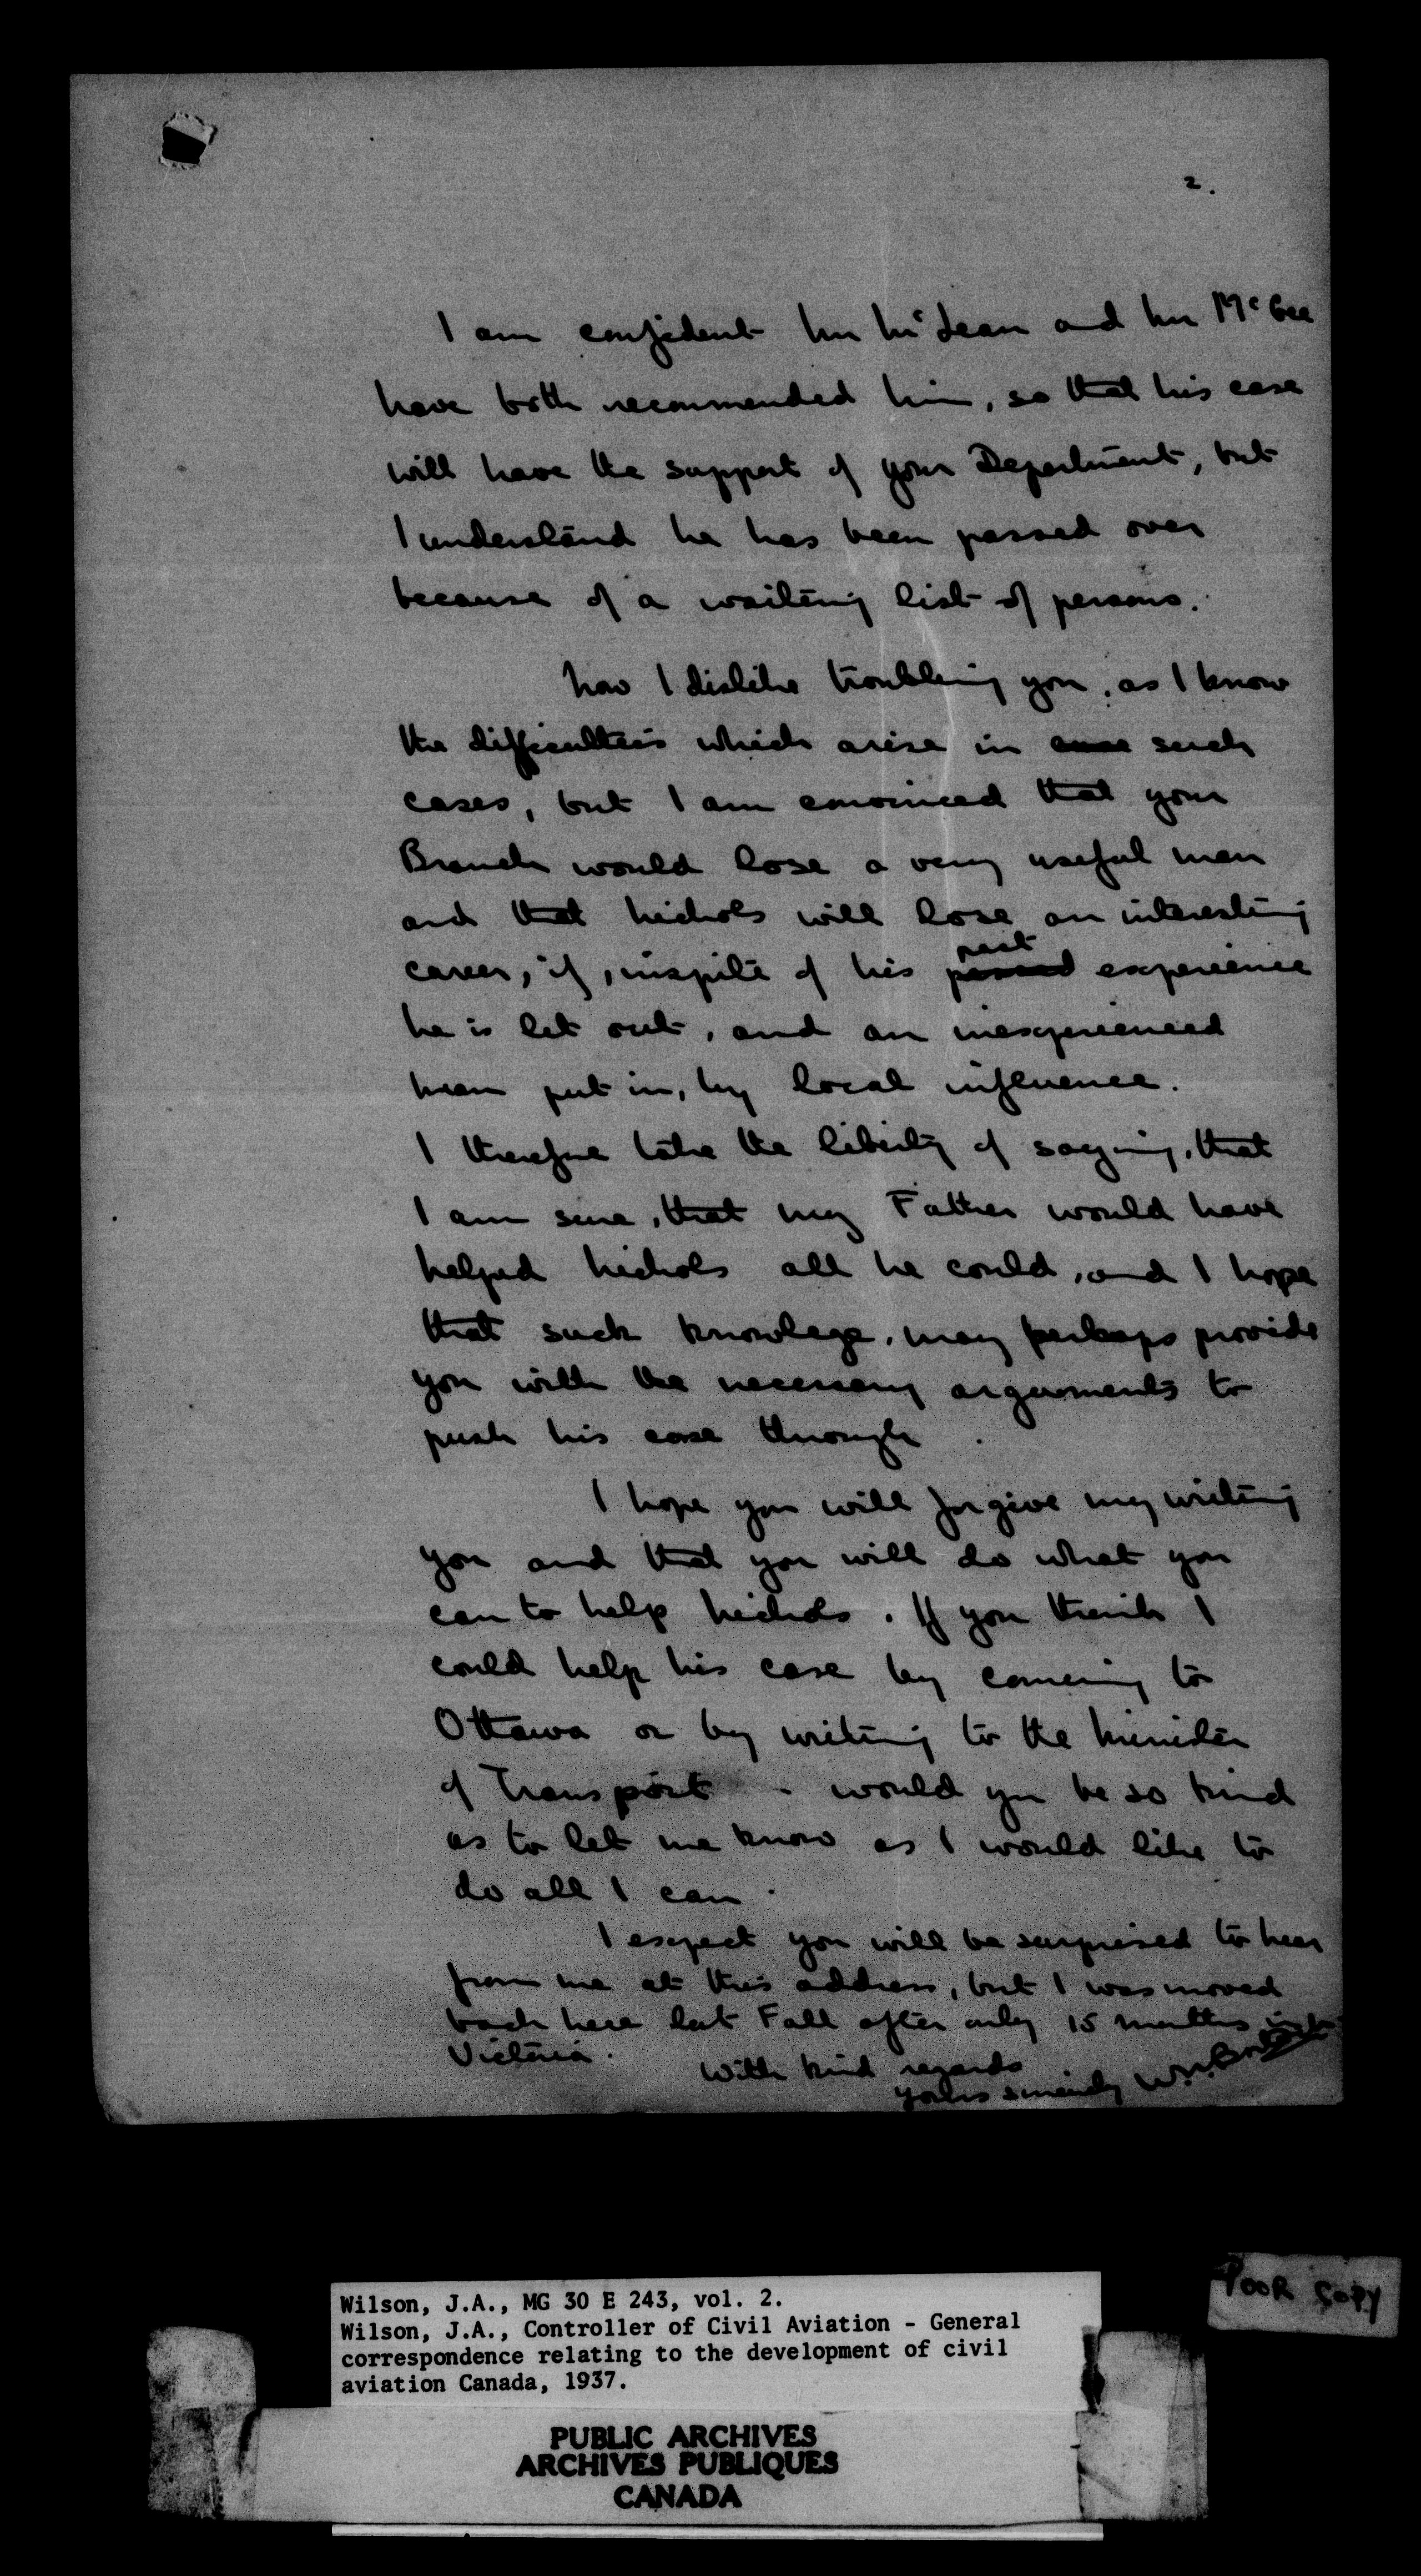 2.
I am confident Mr McLean and Mr McGee
have both recommended him, so that his case
will have the support of your Department, but
I understand he has been passed over
because of a waiting list of persons.
How I dislike troubling you, as I know
the difficulties which arise in such
cases, but I am convinced that your
Branch would lose a very useful man
and that Nichols will lose an interesting
career, if, inspite of his past experience
he is let out, and an inexperienced
man put in, by local influence.
I therefore take the liberty of saying, that
I am sure, that my Father would have
helped Nichols all he could, and I hope
that such knowlege, may perhaps provide
you with the necessary arguments to
push his case through.
I hope you will forgive my writing
you and that you will do what you
can to help Nichols. If you think I
could help his case by coming to
Ottawa or by writing to the Minister
of Transport - would you be so kind
as to let me know as I would like to
do all I can.
I expect you will be surprised to hear
from me at this address, but I was moved
back here last Fall after only 15 months in
Victoria.
With kind regards
yours sincerely
POOR COPY
Wilson, J.A., MG 30 E 243, vol. 2.
Wilson, J.A., Controller of Civil Aviation - General
correspondence relating to the development of civil
aviation Canada, 1937.
PUBLIC ARCHIVES
ARCHIVES PUBLIQUES
CANADA